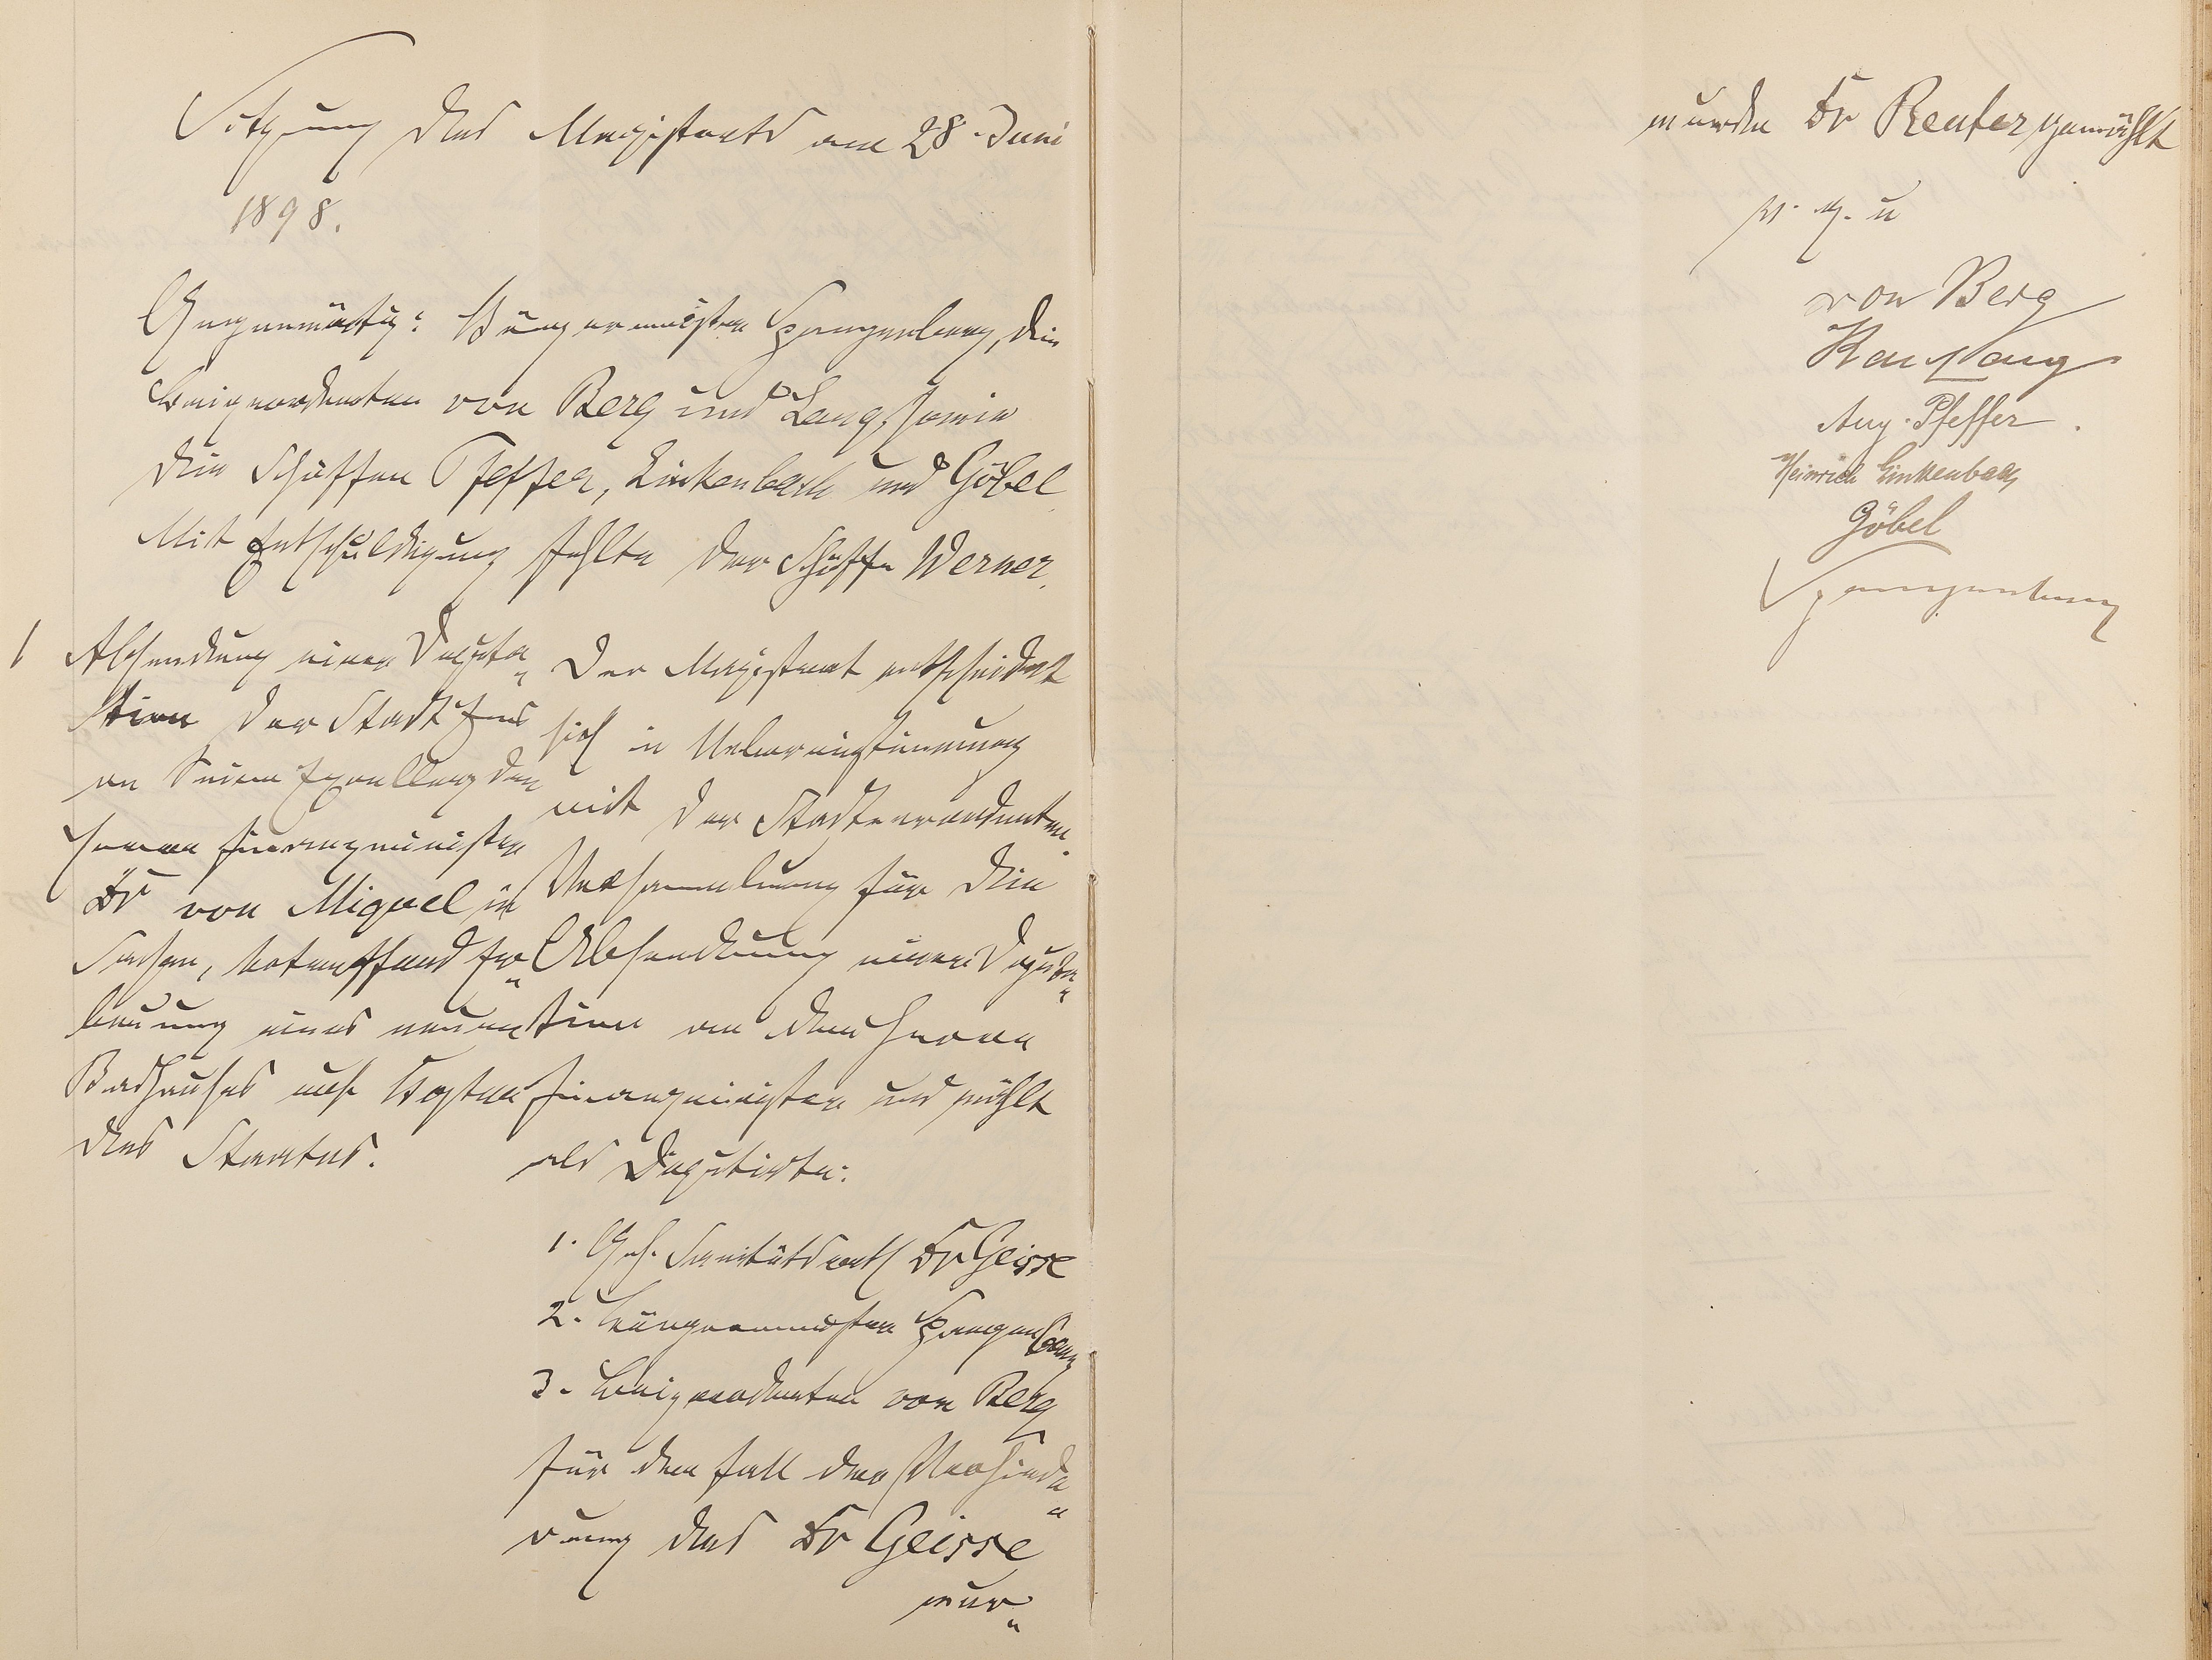 Sitzung des Magistrats am 28. Juni
1898.
Gegenwärtig: Bürgermeister Spangenberg, die
Beigeordneten von Berg und Lang, sowie
die Schöffen Pfeffer, Linkenbach und Göbel
Mit Entschuldigung fehlte der Schöffe Werner.
1 Absendung einer Deputa-
tion der Stadt Ems
an Seine Exzellenz den
Herrn Finanzminister
Dr von Miquel in
Sachen, betreffend Er-
bauung eines neuen
Badhauses auf Kosten
des Staates.
Der Magistrat entscheidet
sich in Uebereinstimmung
mit der Stadtverordneten-
Versammlung für die
Absendung einer Deputa-
tion an den Herrn
Finanzminister und wählt
als Deputirte:
1. Geh. Sanitätsrath Dr Geisse
2. Bürgermeister Spangenberg
3. Beigeordneten von Berg
für den Fall der Verhinde-
rung des Dr Geisse
wur-
wurde Dr Reuter gewählt
v. g. u
von Berg
Karl Lang
Aug. Pfeffer.
Heinrich Linkenbach
Göbel
Spangenberg